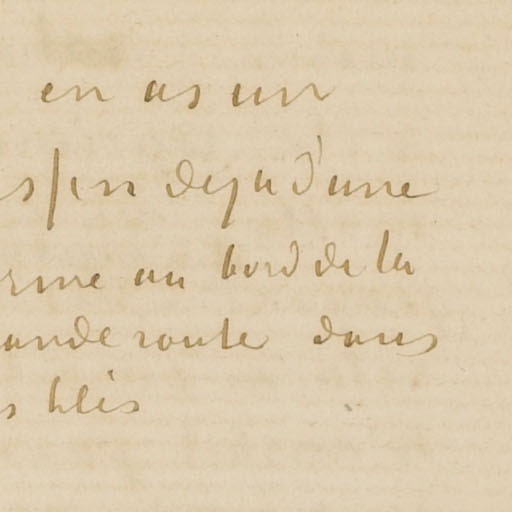 en as un
s fin deja d'une
rme au bord de la
ande route dans
s blés